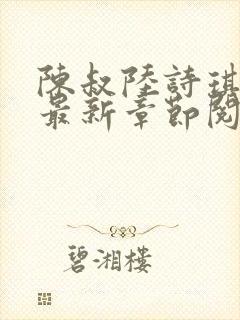 陳叔陸詩琪
最新章節閱
碧湘樓